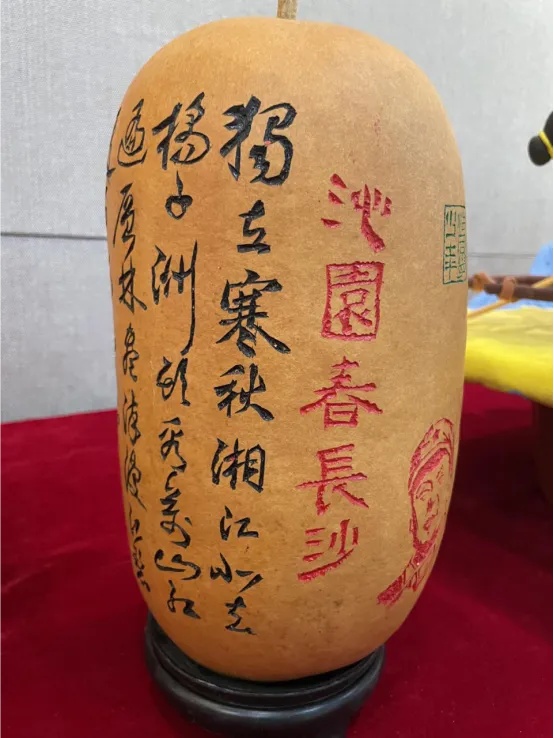 沁園春長沙
獨立寒秋湘江北去
橘子洲頭看萬山红
遍層林盡染漫江碧